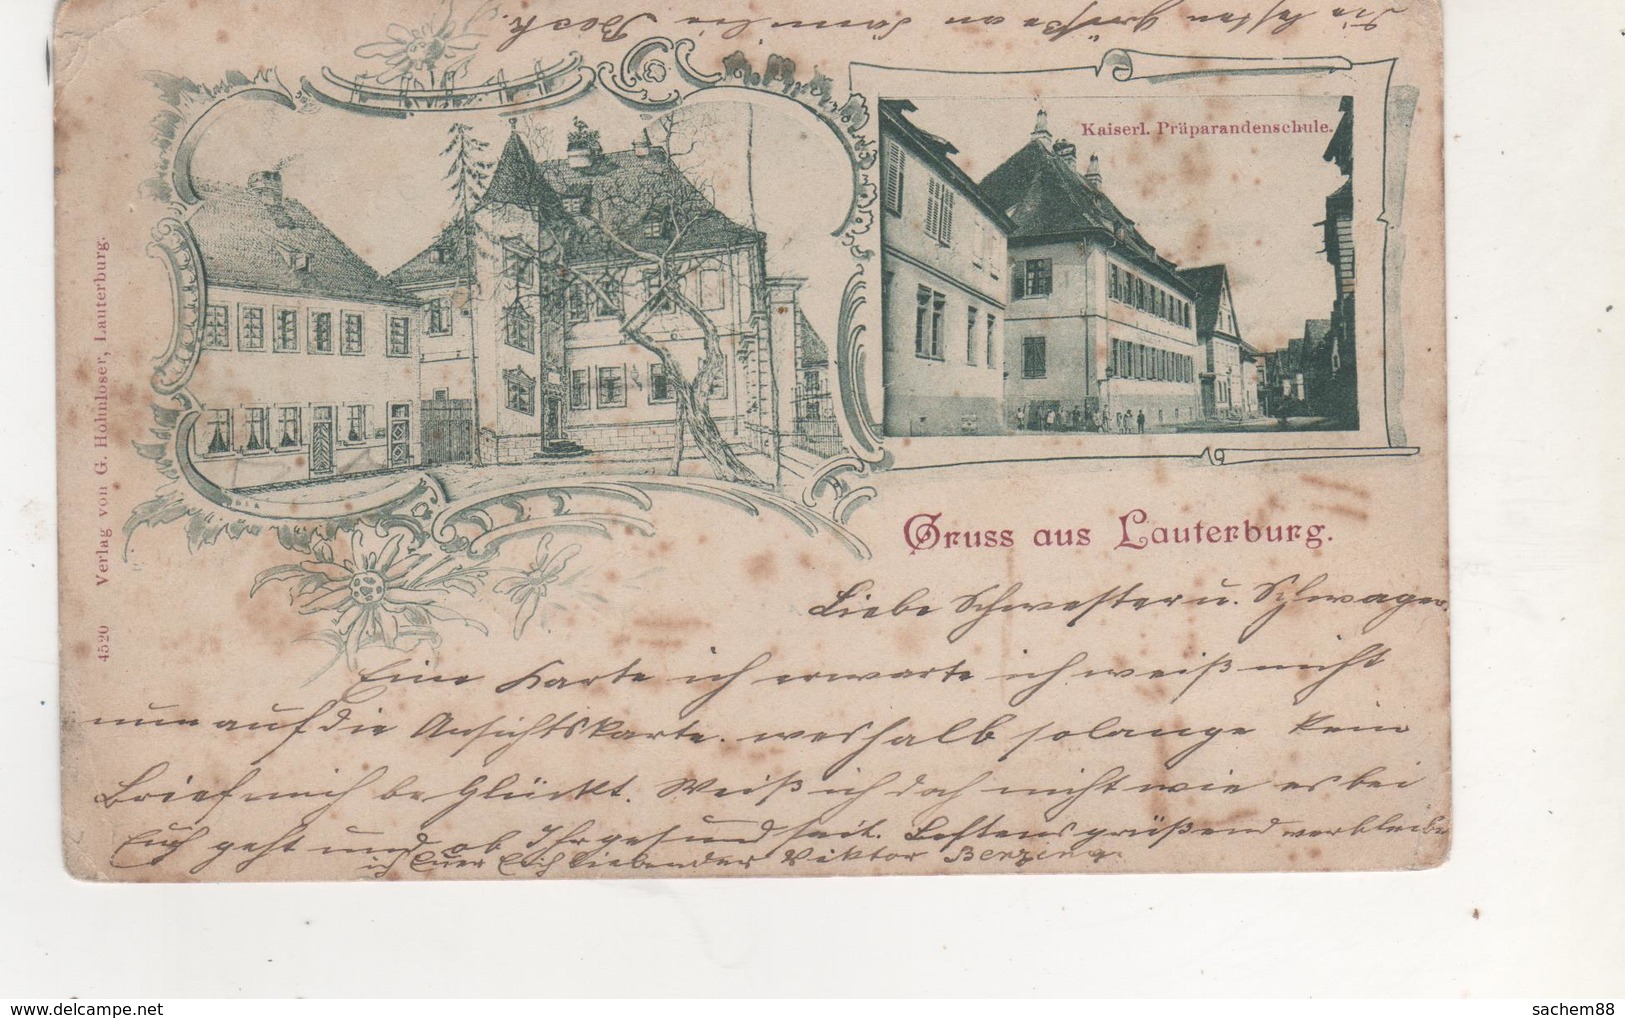 Die besten Grüße an Familie Beck.
Kaiserl. Präparandenschule.
4520 Verlag von G. Hohnloser, Lauterburg.
Gruss aus Lauterburg.
Liebe Schwester u. Schwager.
Eine Karte ich erwarte ich weiß nicht
nun auf die Ansichtskarte. weshalb solange kein
Brief mich beglückt. Weiß ich doch nicht wie es bei
Euch geht und ob Ihr gesund seit. Bestens grüßend verbleibe
ich Euer Euch liebender Viktor
sachem88